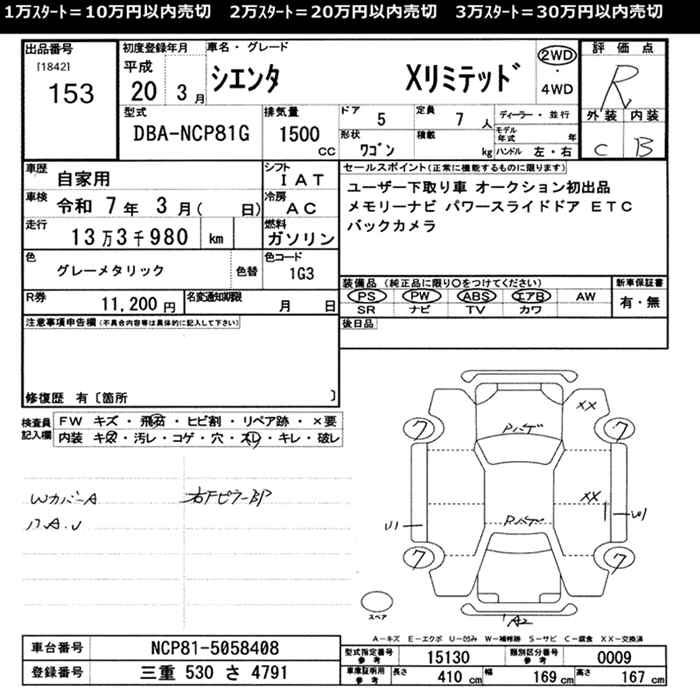 1万ｽﾀｰﾄ＝10万円以内売切　2万ｽﾀｰﾄ＝20万円以内売切　3万ｽﾀｰﾄ＝30万円以内売切
出品番号 初度登録年月 車名・グレード 評価点
[1842] 平成 シエンタ Xリミテッド 2WD R
153 20 3月 ・ 4WD
型式 排気量 ドア 5 定員 7人 ディーラー・並行 外装 内装
DBA-NCP81G 1500 cc 形状 ワゴン 積載 kg モデル年式 年 C B
ハンドル 左・右
車歴 自家用 シフト IAT セールスポイント(正常に機能するものに限ります)
車検 令和 7年 3月( 日) 冷房 AC ユーザー下取り車 オークション初出品
メモリーナビ パワースライドドア ETC
走行 13万3千980 km 燃料 ガソリン バックカメラ
色 グレーメタリック 色替 色コード 1G3
装備品 (純正品に限り○をつけてください) 新車保証書
R券 11,200円 名変通知期限 月 日 PS PW ABS エアB AW 有・無
SR ナビ TV カワ
注意事項申告欄(不具合内容等は具体的に記入して下さい) 後日品
修復歴 有 [箇所 ]
検査員記入欄 FW キズ・飛石・ヒビ割・リペア跡・×要
内装 キズ・汚レ・コゲ・穴・スレ・キレ・破レ
WカバーA 右Fピラー部
XX
7 Rハゲ 7
XX
U1 Rハゲ W1
7 7
スペア A2
A－キズ E－エクボ U－凹み W－補修跡 S－サビ C－腐食 XX－交換済
車台番号 NCP81-5058408 型式指定番号 参考 15130 類別区分番号 参考 0009
登録番号 三重 530 さ 4791 車庫証明用 参考 長さ 410 cm 幅 169 cm 高さ 167 cm